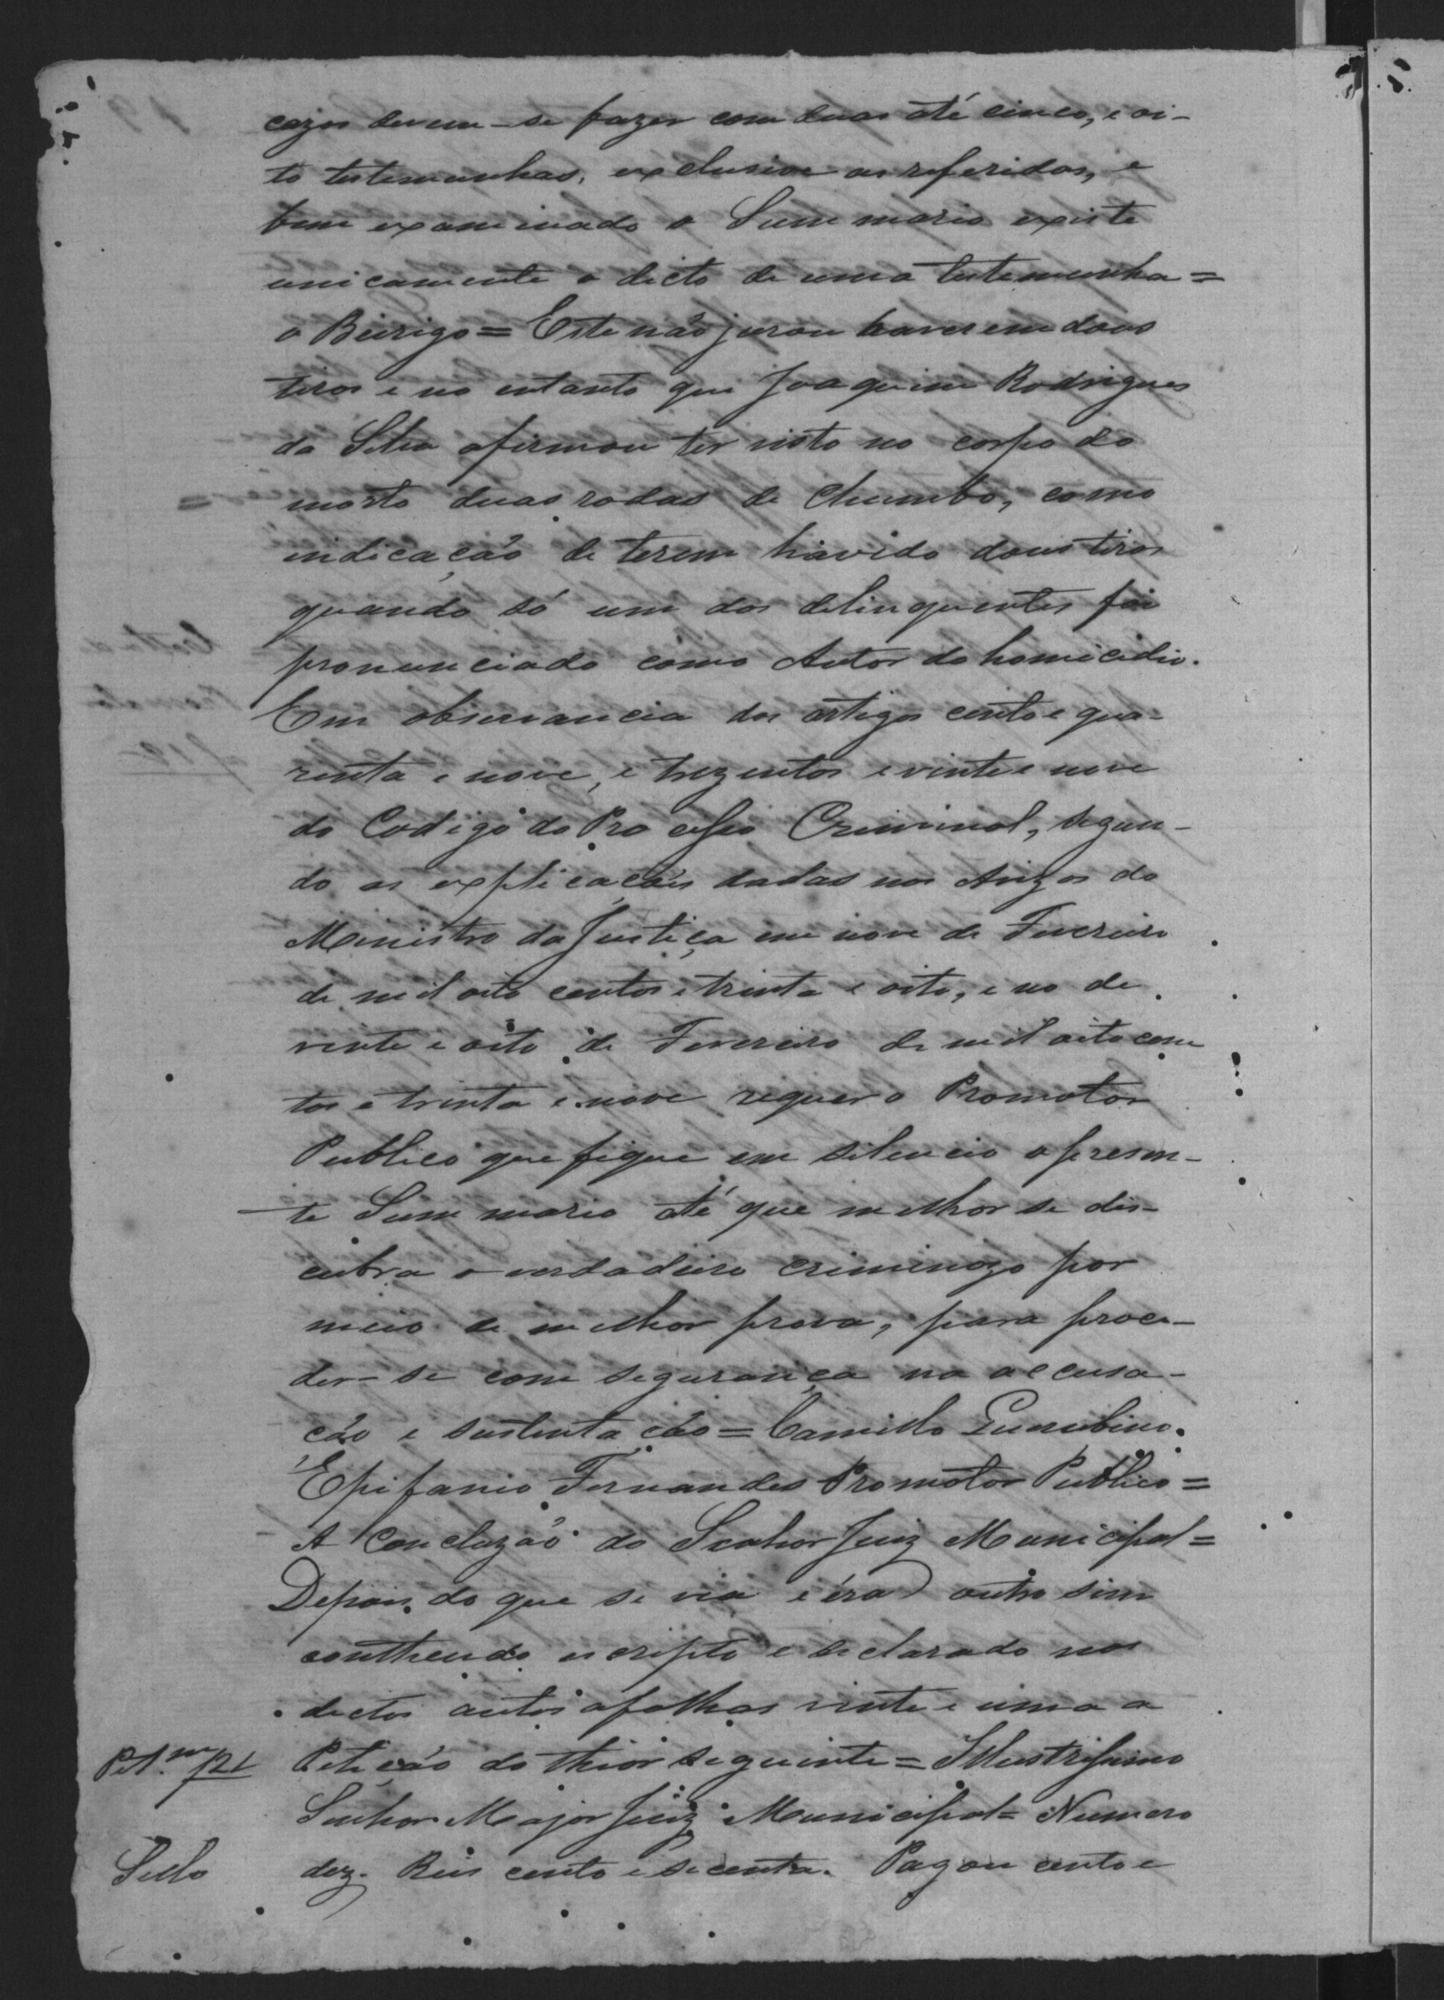 cazos devem-se fazer com duas até cinco, e oi-
to testemunhas, exclusive as referidas, e
bem examinado o Summario existe
unicamente o dicto de uma testemunha=
o Beirigo= Este não jurou haverem dous
tiros e no entanto que Joaquim Rodrigues
da Silva afirmou ter visto no corpo do
morto duas rodas de chumbo, como
indicação de terem havido dous tiros
quando só um dos delinquentes foi
pronunciado como Autor do homicidio.
Em observancia dos artigos cento e qua-
renta e nove, e trezentos e vinte e nove
do Codigo do Processo Criminal, segun-
do as explicações dadas nos Avizos do
Ministro da Justiça em nove de Fevereiro
de mil oito centos e trinta e oito, e no de
vinte e oito de Fevereiro de mil oito cen
tos e trinta e nove requer o Promotor
Publico que fique em silencio o presen-
te Summario até que melhor se dis-
cubra o verdadeiro criminozo por
meio de melhor prova, para proce-
der-se com segurança na accusa-
ção e sustentação= Camillo
Epifanio Fernandes Promotor Publico=
A Concluzão do Senhor Juiz Municipal=
Depois do que se via e éra outro sim
conthendo escripto e declarado nos
dictos autos afolhas vinte e uma a
Pet.m f21 Petição do théor seguinte= Illustrissimo
Senhor Major Juiz Municipal= Numero
Sello dez. Reis cento e secenta. Pagou cento e